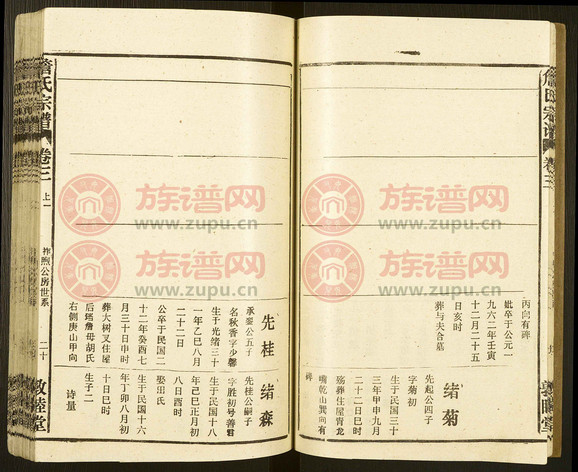 丙向有碑
妣卒于公元一
九六二年壬寅
十二月二十五
日亥时
葬与夫合墓
绪菊
先起公四子
字菊初
生于民国三十
三年甲申九月
二十二日巳时
殇葬住屋青龙
嘴乾山巽向有
碑
先桂
承銮公五子
名秋香字少馨
生于光绪三十
一年乙巳八月
二十二日
公卒于民国二
十二年癸酉七
月三十日申时
葬大树叉住屋
后坯詹母胡氏
右侧庚山甲向
绪森
先桂公嗣子
字胜初号善君
生于民国十八
年己巳正月初
八日酉时
娶田氏
生于民国十六
年丁卯八月初
十日巳时
生子二
诗量
詹氏宗谱
卷三
上一
祚煦公房世系
二十
敦睦堂
卷三
族谱网
www.zupu.cn
族谱网
www.zupu.cn
族谱网
www.zupu.cn
族谱网
www.zupu.cn